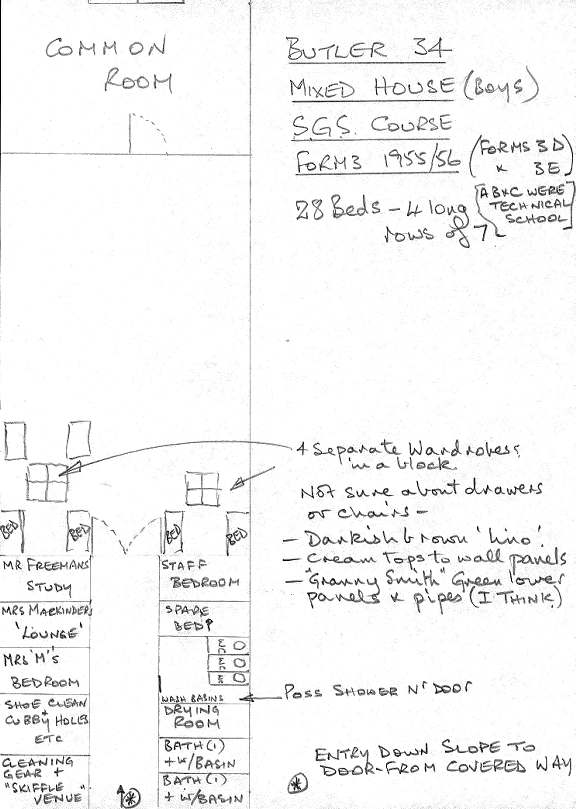 COMMON
ROOM
BUTLER 34
MIXED HOUSE (BOYS)
S.G.S. COURSE
FORM 3 1955/56 (FORMS 3D
& 3E)
28 Beds - 4 long
rows of 7
[A B & C WERE
TECHNICAL
SCHOOL]
4 Separate Wardrobes
in a block
Not sure about drawers
or chairs -
BED
BED
BED
BED
- Darkish brown 'lino'.
- Cream Tops to wall panels
- "Granny Smith" Green lower
panels & pipes (I THINK)
MR FREEMANS
STUDY
MRS MACKINDERS
'LOUNGE'
MRS 'M''S
BEDROOM
SHOE CLEAN
+
CUBBY HOLES
ETC
CLEANING
GEAR +
"SKIFFLE"
VENUE
STAFF
BEDROOM
SPARE
BED?
WASH BASINS
DRYING
ROOM
BATH (1)
+ W/BASIN
BATH (1)
+ W/BASIN
POSS SHOWER Nr DOOR
ENTRY DOWN SLOPE TO
DOOR - FROM COVERED WAY